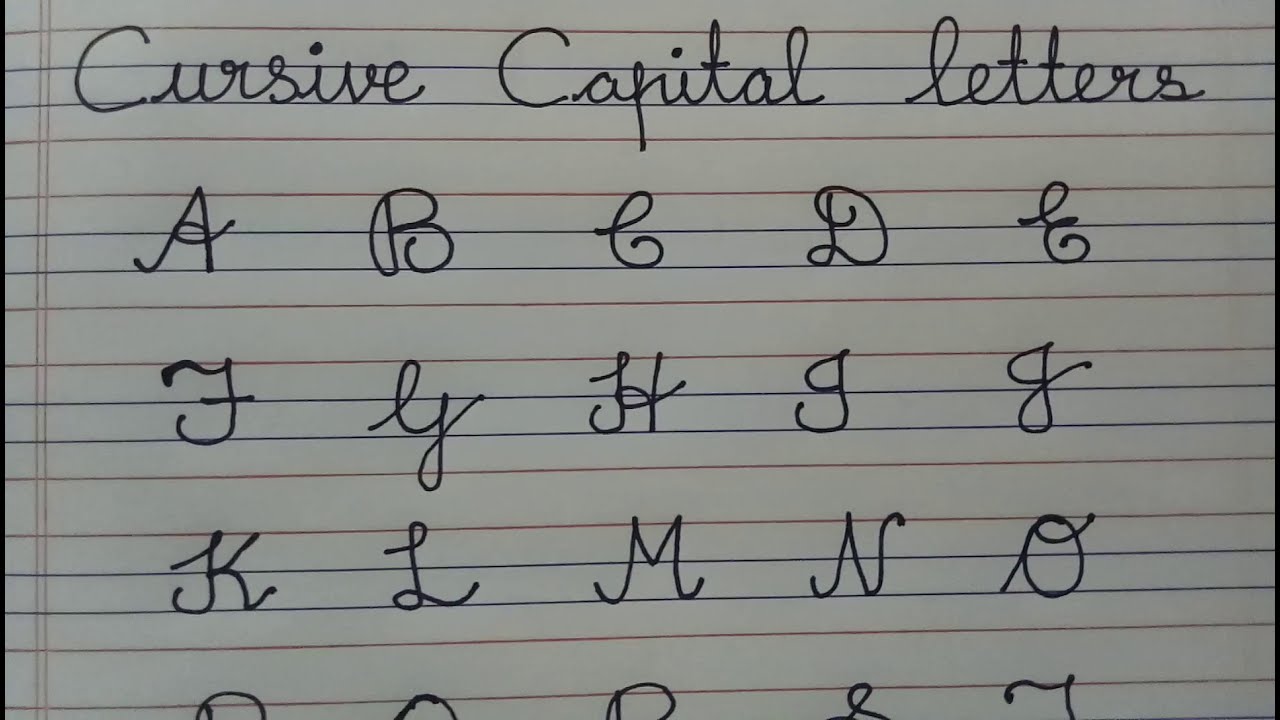 Cursive Capital letters
A B C D E
F G H I J
K L M N O